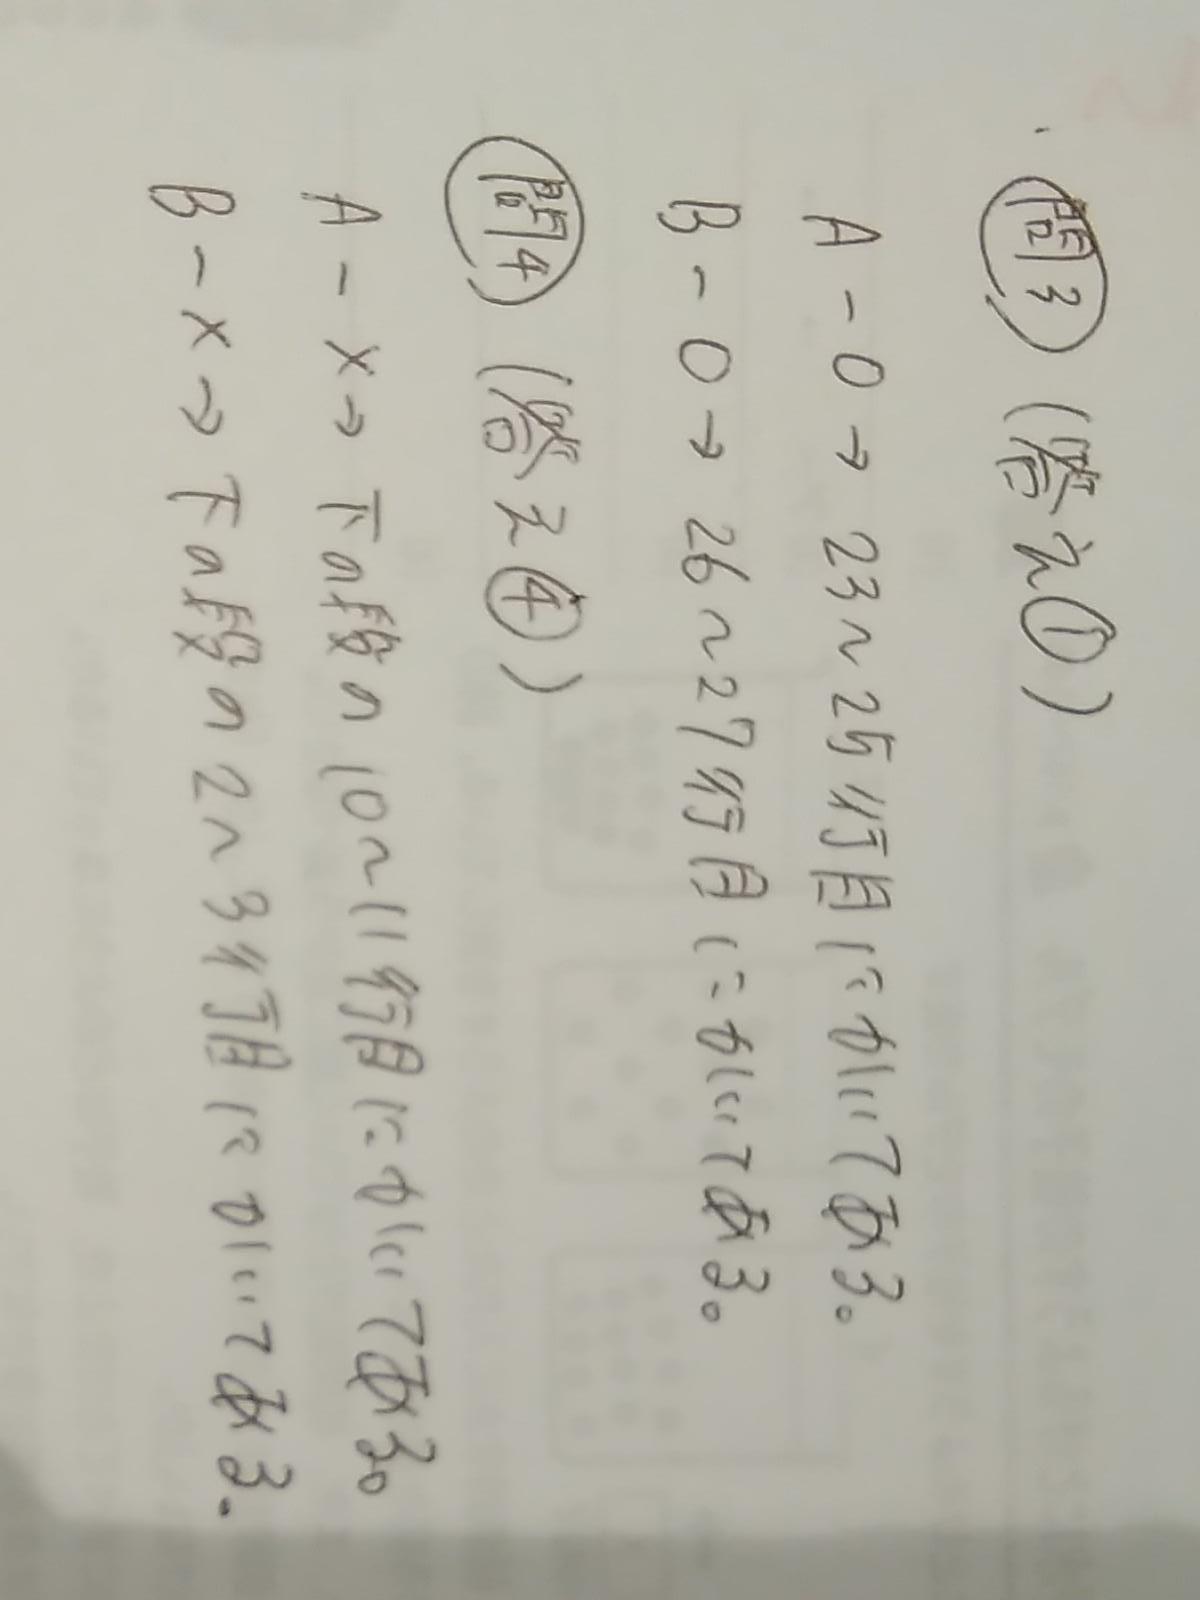 問3 (答え①)
A-0→23~25行目にかいてある。
B-0→26~27行目にかいてある。
問4 (答え④)
A-×→下の段の10~11行目にかいてある。
B-×→下の段の2~3行目にかいてある.